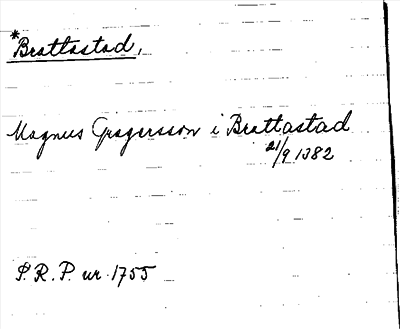 *Brattastad,
Magnus Gregersson i Brattastad
21/9 1382
S.R.P. nr 1755